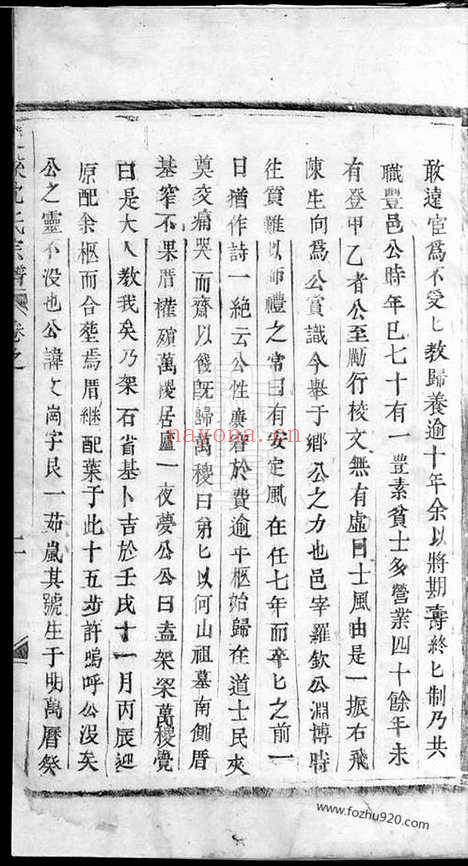 敢違宦為不愛匕教歸養逾十年余以將期壽終匕制乃共
職豐邑公時年已七十有一豐素貧士多營業四十餘年未
有登甲乙者公至勵行校文無有虛日士風由是一振右飛
陳生向為公賞識今舉于鄉公之力也邑宰羅欽公淵博時
往質難以師禮之常曰有安定風在任七年而卒匕之前一
日猶作詩一絕云公性廉窘於費逾年柩始歸在道士民夾
奠交痛哭而齋以餞旣歸萬稷曰弟匕以何山祖墓南側厝
基窄不果厝權殯萬稷居廬一夜夢公公曰盍架梁萬稷覺
曰是大人教我矣乃架石省基卜吉於壬戌十一月丙辰迎
原配余柩而合塟焉厝継配葉于此十五步許嗚呼公没矣
公之靈不没也公諱文崗字民一茹嵐其號生于明萬曆癸
沈氏宗譜 卷之
二
nayona.cn
www.fozhu920.com